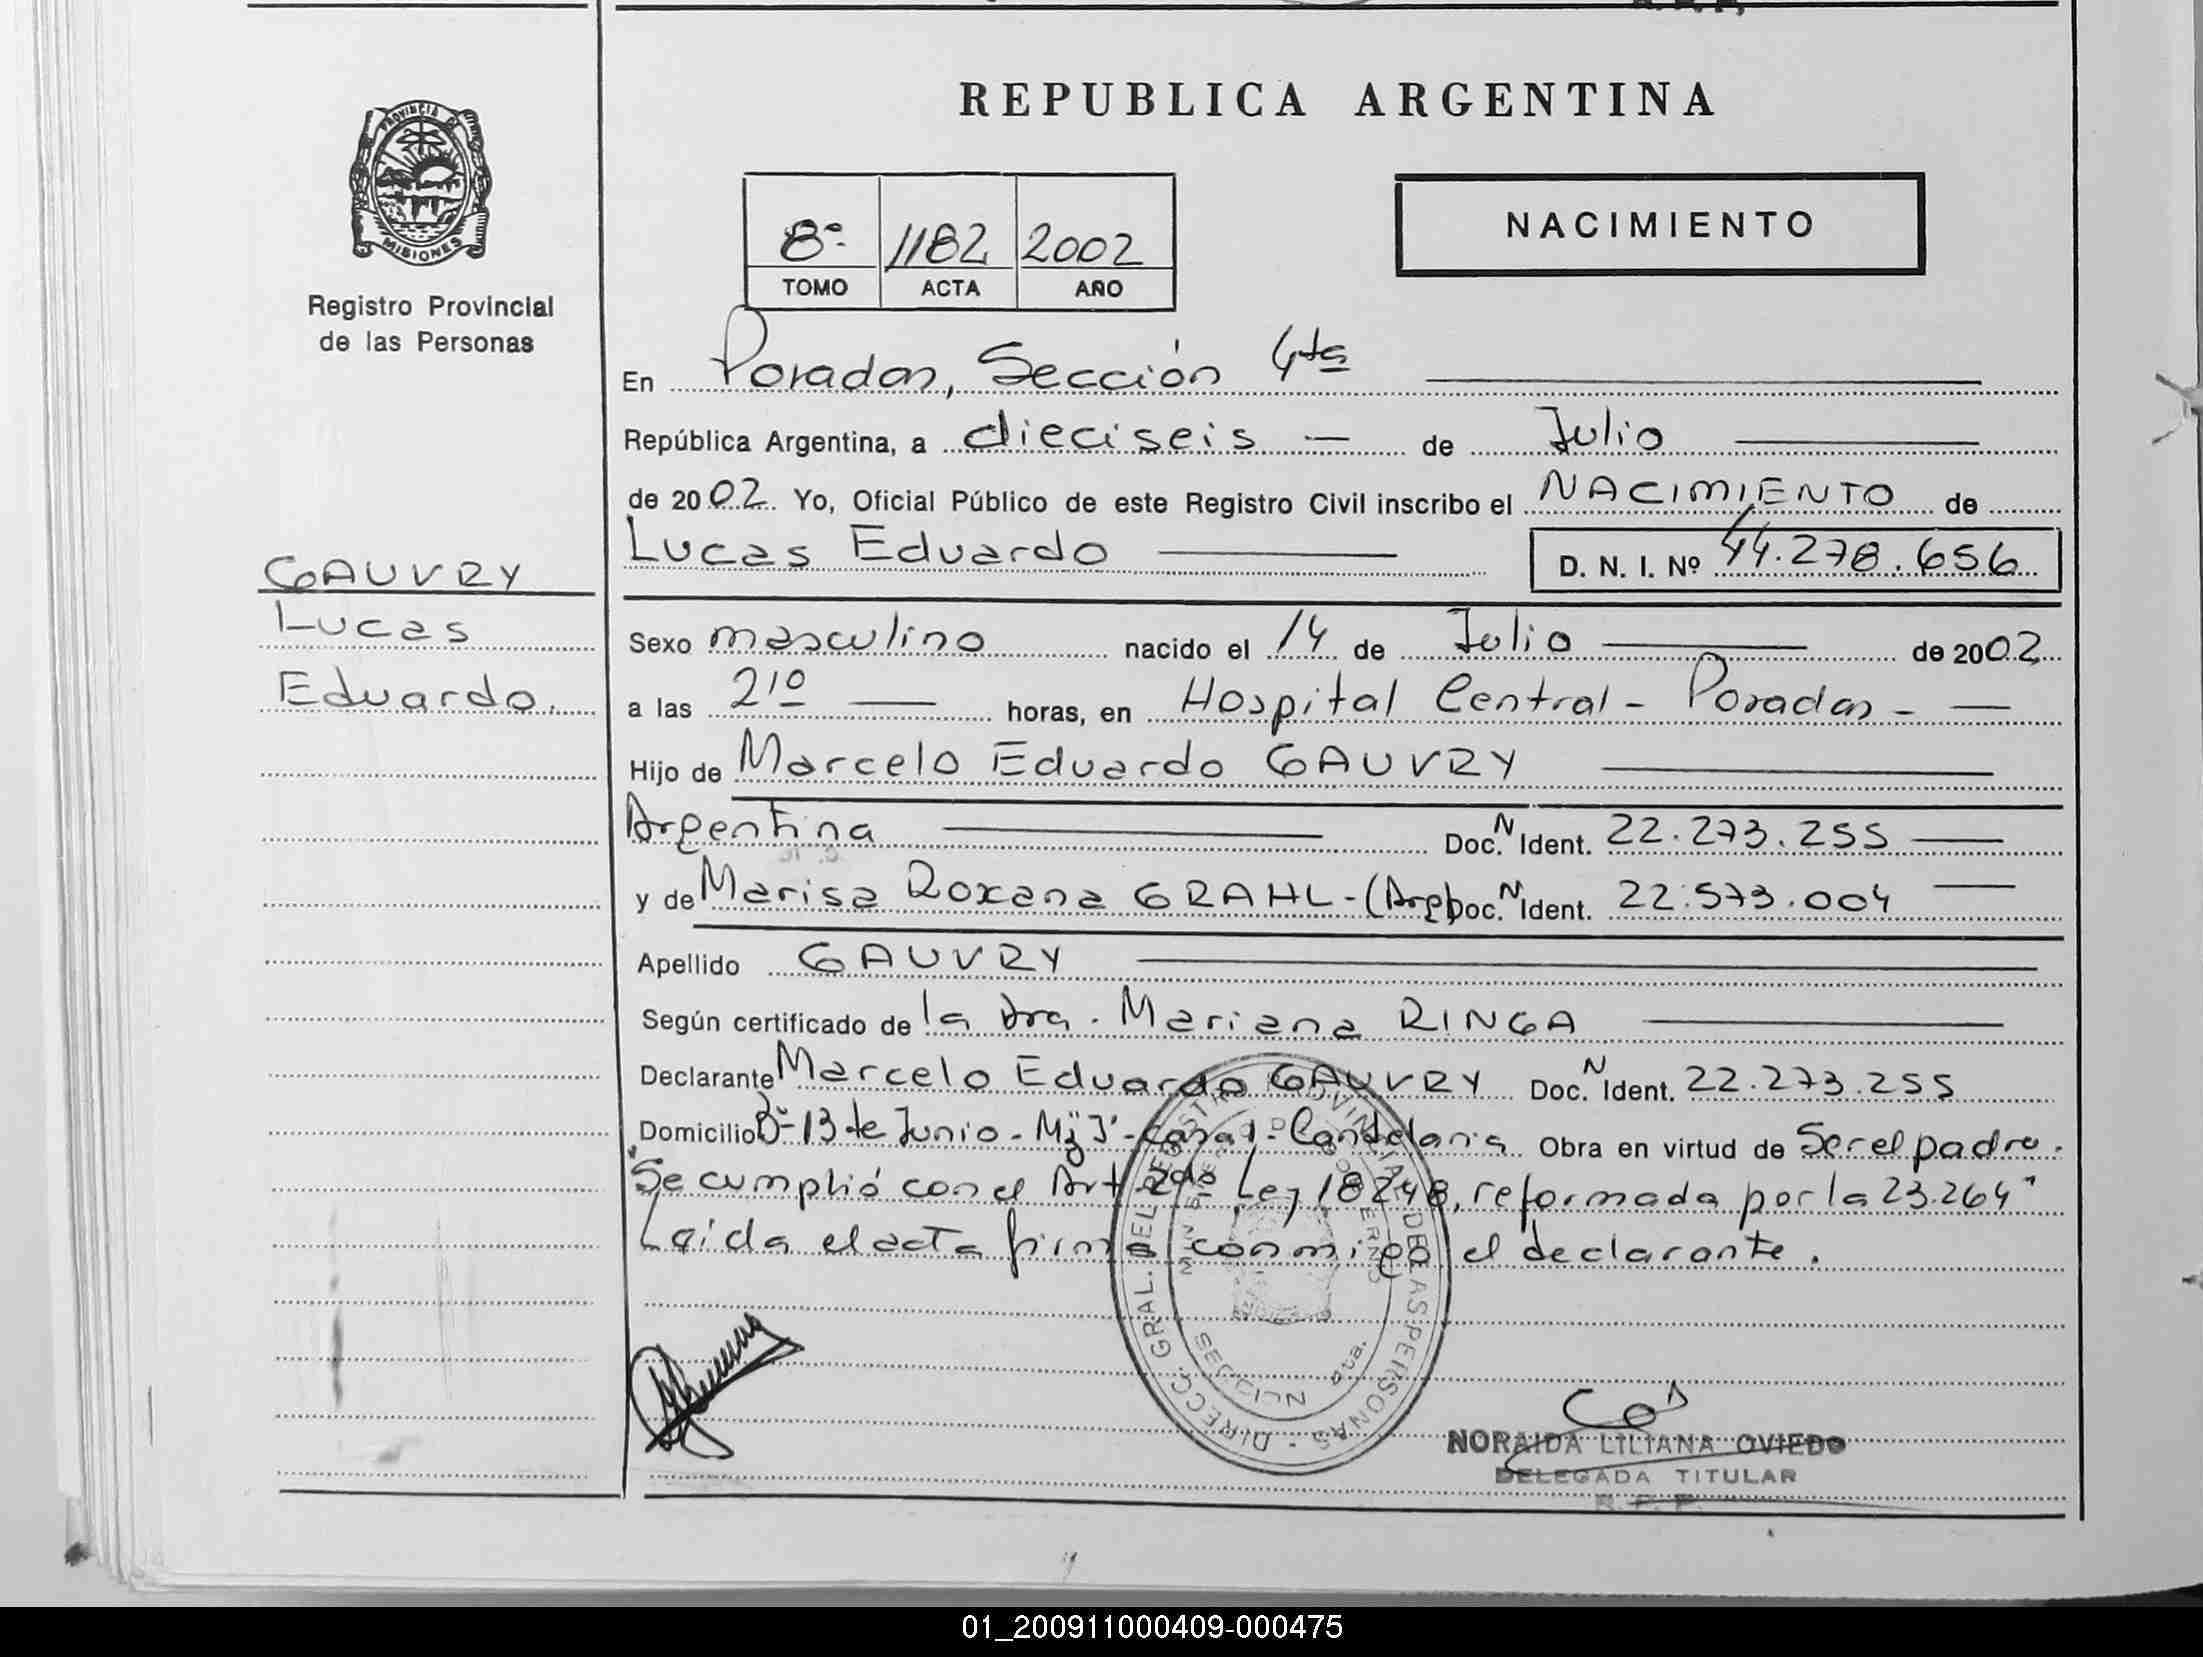 REPUBLICA ARGENTINA
PROVINCIA DE
MISIONES
Registro Provincial
de las Personas
8º 1182 2002
TOMO ACTA AÑO
NACIMIENTO
En Posadas, Sección 4ta
República Argentina, a dieciseis — de Julio
de 2002 Yo, Oficial Público de este Registro Civil inscribo el NACIMIENTO de
Lucas Eduardo D. N. I. Nº 44.278.656
GAUVRY
Lucas
Eduardo.
Sexo masculino nacido el 14 de Julio de 2002
a las 21º horas, en Hospital Central - Posadas -
Hijo de Marcelo Eduardo GAUVRY
Argentina Doc. N Ident. 22.273.255
y de Marisa Roxana GRAHL - (Arg) Doc. N Ident. 22.573.004
Apellido GAUVRY
Según certificado de la Dra. Mariana RINGA
Declarante Marcelo Eduardo GAUVRY Doc. N Ident. 22.273.255
Domicilio Bº 13 de Junio - Mz J - Casa 1 - Candelaria Obra en virtud de Ser el padre.
"Se cumplió con el Art 2do Ley 18248, reformada por la 23.264"
Leida el acta firma conmigo el declarante.
DIRECC. GRAL. DEL REGISTRO PROVINCIAL DE LAS PERSONAS
MIN DE GOBIERNO
SECCION 4ta.
NORAIDA LILIANA OVIEDO
DELEGADA TITULAR
R. P. P.
01_200911000409-000475